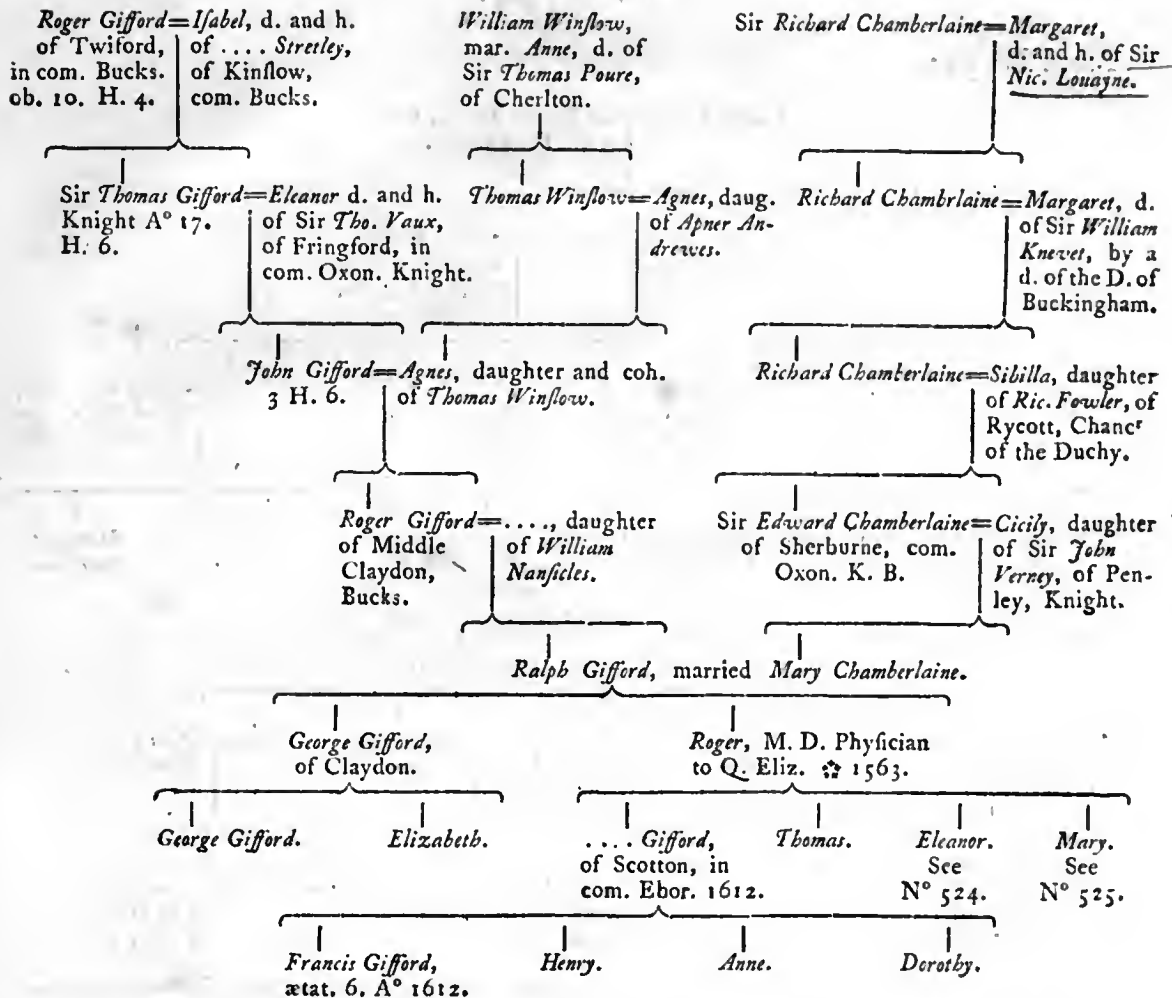 Roger Gifford=Iſabel, d. and h.
of Twiford, of .... Stretley,
in com. Bucks. of Kinſlow,
ob. 10. H. 4. com. Bucks.
William Winſlow,
mar. Anne, d. of
Sir Thomas Poure,
of Cherlton.
Sir Richard Chamberlaine=Margaret,
d. and h. of Sir
Nic. Louayne.
Sir Thomas Gifford=Eleanor d. and h.
Knight A° 17. of Sir Tho. Vaux,
H. 6. of Fringford, in
com. Oxon. Knight.
Thomas Winſlow=Agnes, daug.
of Apner An-
drewes.
Richard Chambrlaine=Margaret, d.
of Sir William
Knevet, by a
d. of the D. of
Buckingham.
John Gifford=Agnes, daughter and coh.
3 H. 6. of Thomas Winſlow.
Richard Chamberlaine=Sibilla, daughter
of Ric. Fowler, of
Rycott, Chancʳ
of the Duchy.
Roger Gifford=...., daughter
of Middle of William
Claydon, Nanſicles.
Bucks.
Sir Edward Chamberlaine=Cicily, daughter
of Sherburne, com. of Sir John
Oxon. K. B. Verney, of Pen-
ley, Knight.
Ralph Gifford, married Mary Chamberlaine.
George Gifford,
of Claydon.
Roger, M. D. Phyſician
to Q. Eliz. 1563.
George Gifford. Elizabeth.
.... Gifford, Thomas. Eleanor. Mary.
of Scotton, in See See
com. Ebor. 1612. N° 524. N° 525.
Francis Gifford, Henry. Anne. Dorothy.
ætat. 6. A° 1612.